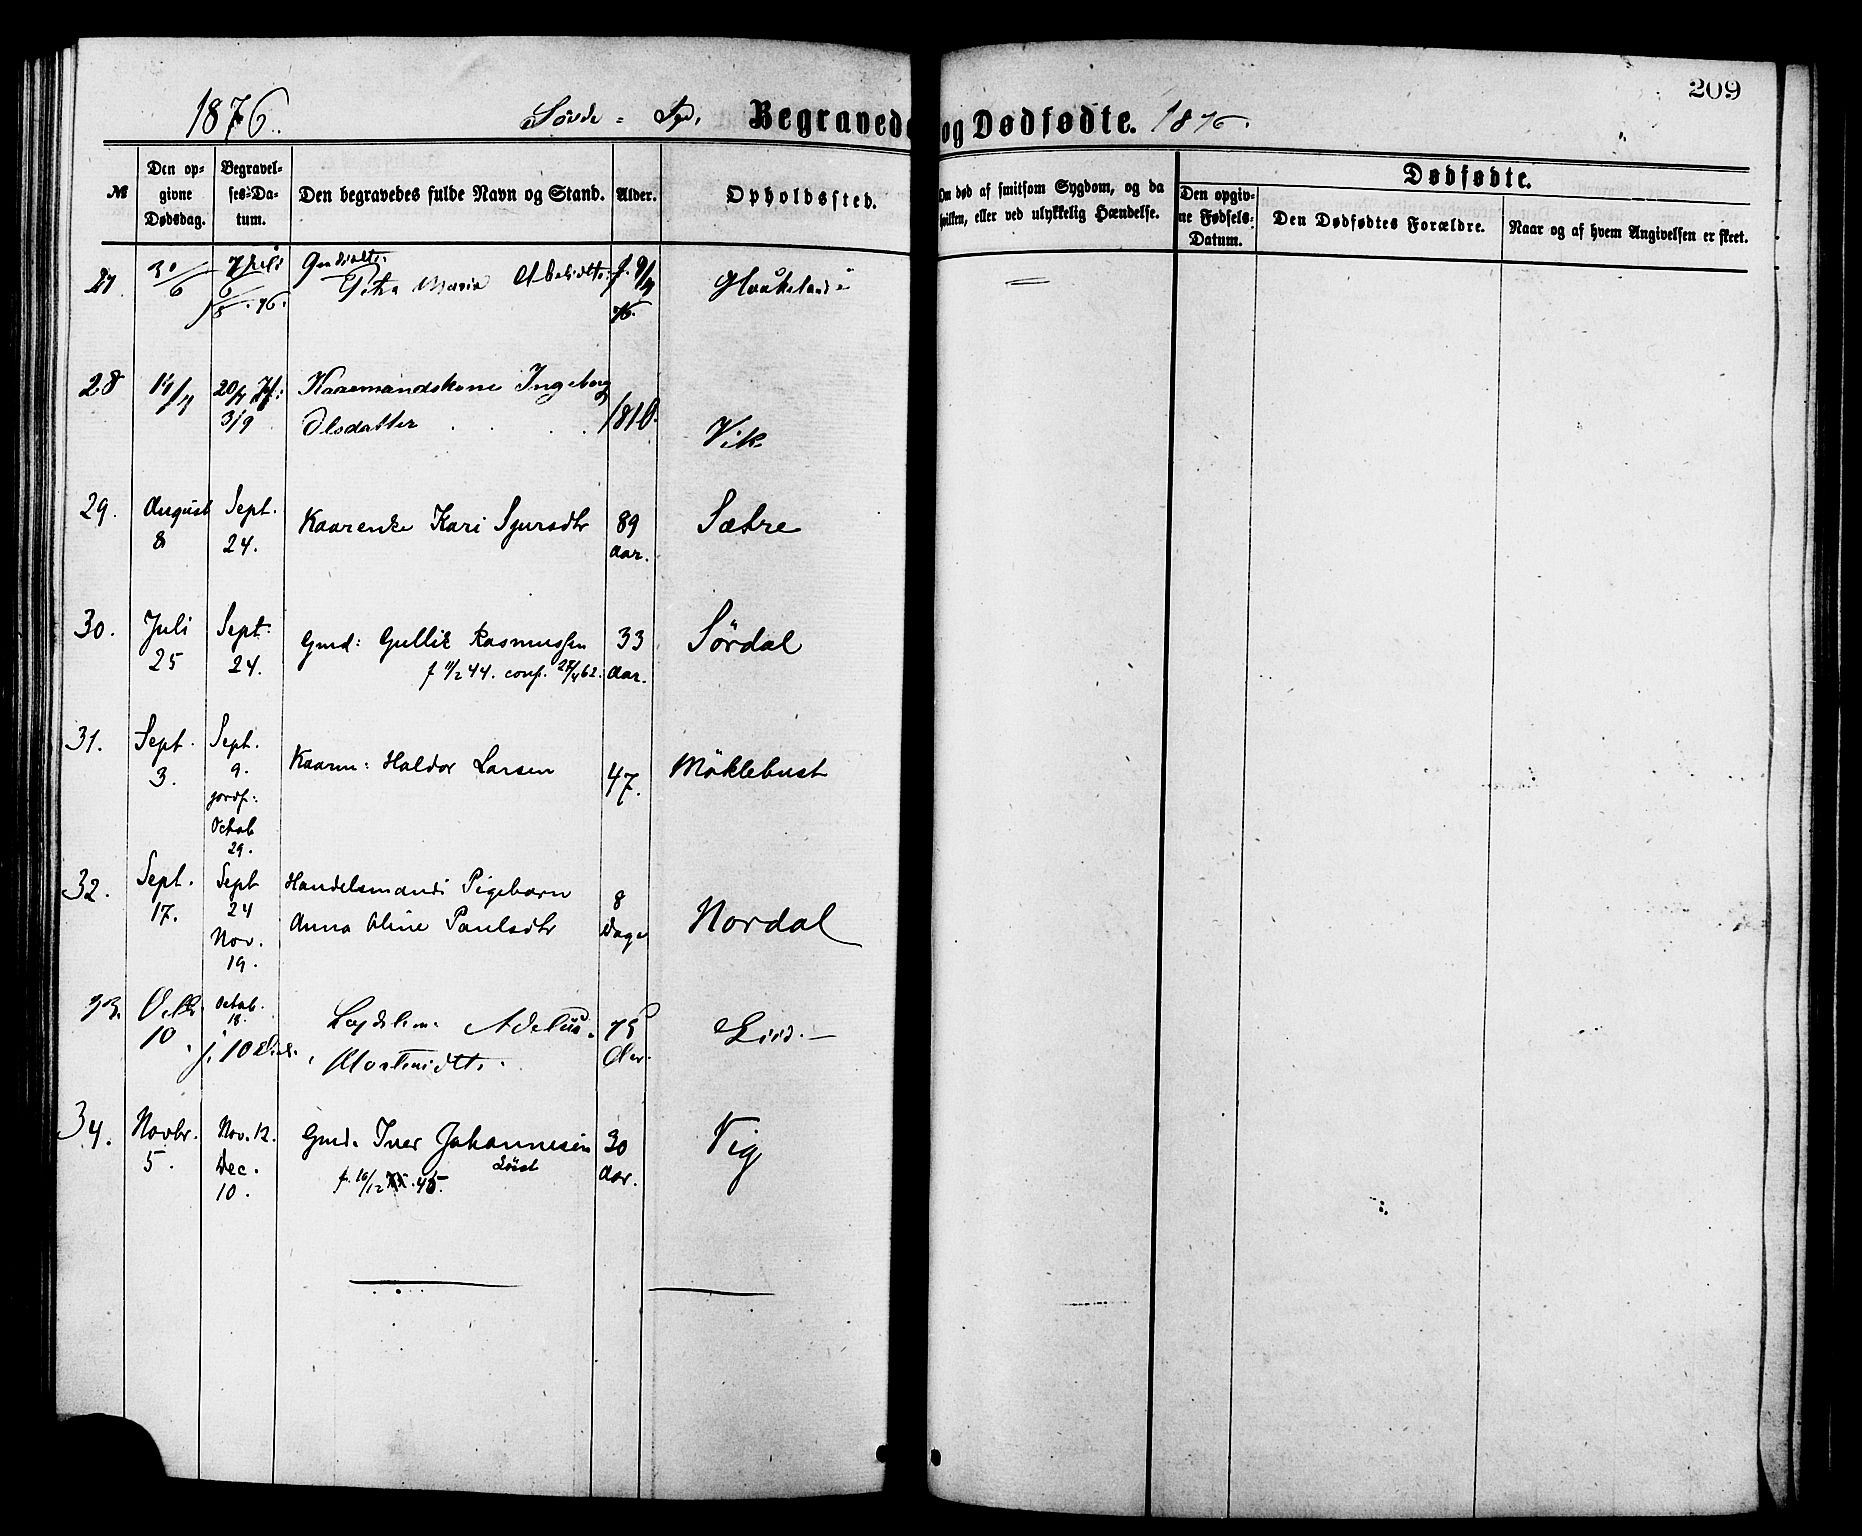 209
1876.
Begravede og Dødfødte. 1876.
№
Den opgivne Dødsdag.
Begravelses-Datum.
Den begravedes fulde Navn og Stand.
Alder.
Opholdssted.
Om død af smitsom Sygdom, og da hvilken, eller ved ulykkelig Hændelse.
Dødfødte.
Den opgivne Fødsels-Datum.
Den Dødfødtes Forældre.
Naar og af hvem Angivelsen er skeet.
27 30/6 7 Juli
Petra Maria f. 9/4
76.
28 17/7 20/7 Jf: Kaaremandskone Ingeborg
3/9 Olsdatter 1810. Vik
29. August Sept. Kaarenke Kari Sjursdtr 89 Sætre
8 24. aar.
30. Juli Sept. Gmd: Gullik Rasmussen 33 Sördal
25 24. f 11/2 44. conf. 27/4 62. aar.
31. Sept. Sept. Kaarm: Haldor Larsen 47. Möklebust
3. 9.
jordf:
Octob
29.
32. Sept. Sept Handelsmands Pigebarn 8 Nordal
17. 24 Anna Oline Paulsdtr Dage
Nov.
19.
33. Octbr. Octob.
10 18. 75
j. 10 Dec. Aar.
34. Novbr. Nov. 12. Gmd. Iver Johannesen 30 Vig
5. Dec. aar.
10. f. 16/12 45.